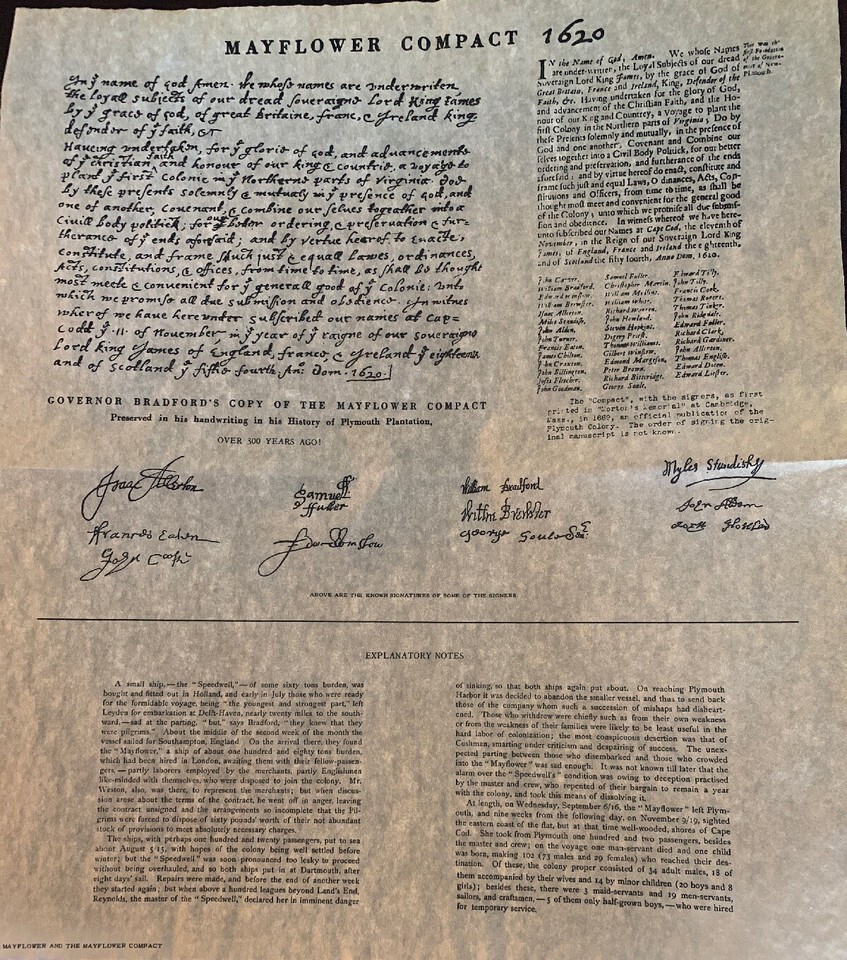 MAYFLOWER COMPACT 1620
In yͤ name of god Amen. We whose names are underwriten,
the loyall subjects of our dread soveraigne Lord King James
by yͤ grace of god, of great Britaine, franc, & Ireland king,
defender of yͤ faith, &c
Haveing undertaken, for yͤ glorie of god, and advancemente
of yͤ christian faith and honour of our king & countrie, a voyage to
plant yͤ first colonie in yͤ Northerne parts of Virginia. Doe
by these presents solemnly & mutualy in yͤ presence of god, and
one of another, covenant, & combine our selves togeather into a
civill body politick; for our better ordering, & preservation & fur-
therance of yͤ ends aforesaid; and by vertue hearof to enacte,
constitute, and frame shuch just & equall lawes, ordinances,
Acts, constitutions, & offices, from time to time, as shall be thought
most meete & convenient for yͤ generall good of yͤ Colonie: unto
which we promise all due submission and obedience. In witnes
wherof we have hereunder subscribed our names at Cap=
Codd yͤ .11. of November, in yͤ year of yͤ raigne of our soveraigne
Lord king James of England, france, & Ireland yͤ eighteenth
and of Scotland yͤ fiftie fourth. An: Dom. 1620.
GOVERNOR BRADFORD'S COPY OF THE MAYFLOWER COMPACT
Preserved in his handwriting in his History of Plymouth Plantation,
OVER 300 YEARS AGO!
IN the Name of God, Amen. We whose Names
are under-written, the Loyal Subjects of our dread
Sovereign Lord King James, by the grace of God of
Great Britain, France and Ireland, King, Defender of the
Faith, &c. Having undertaken for the glory of God,
and advancement of the Christian Faith, and the Ho-
nour of our King and Countrey, a Voyage to plant the
first Colony in the Northern parts of Virginia; Do by
these Presents solemnly and mutually, in the presence of
God and one another, Covenant and Combine our
selves together into a Civil Body Politick, for our better
ordering and preservation, and furtherance of the ends
aforesaid: and by virtue hereof do enact, constitute and
frame such just and equal Laws, Ordinances, Acts, Con-
stitutions and Officers, from time to time, as shall be
thought most meet and convenient for the general good
of the Colony; unto which we promise all due submis-
sion and obedience. In witness whereof we have here-
unto subscribed our Names at Cape Cod, the eleventh of
November, in the Reign of our Sovereign Lord King
James, of England, France and Ireland the eighteenth,
and of Scotland the fifty fourth, Anno Dom. 1620.
This was the first Foundation of the Government of New-Plimouth.
John Carver, Samuel Fuller, Edward Tilly,
William Bradford, Christopher Martin, John Tilly,
Edward Winslow, William Mullins, Francis Cook,
William Brewster, William White, Thomas Rogers,
Isaac Allerton, Richard Warren, Thomas Tinker,
Miles Standish, John Howland, John Ridgdale,
John Alden, Steven Hopkins, Edward Fuller,
John Turner, Digery Priest, Richard Clark,
Francis Eaton, Thomas Williams, Richard Gardiner,
James Chilton, Gilbert Winslow, John Allerton,
John Craxton, Edmond Margeson, Thomas English,
John Billington, Peter Brown, Edward Doten,
Joses Fletcher, Richard Bitteridge, Edward Liester.
John Goodman, George Soule,
The "Compact", with the signers, as first
printed in "Morton's Memorial" at Cambridge,
Mass., in 1669, an official publication of the
Plymouth Colony. The order of signing the orig-
inal manuscript is not known.
Isaac Allerton
Samuel
ffuller
William Bradford
Myles Standish
Willm Brewster
John Alden
Francis Eaton
George Soule
John Cooke
Edw Winslow
ABOVE ARE THE KNOWN SIGNATURES OF SOME OF THE SIGNERS
EXPLANATORY NOTES
A small ship,—the "Speedwell,"—of some sixty tons burden, was
bought and fitted out in Holland, and early in July those who were ready
for the formidable voyage, being "the youngest and strongest part," left
Leyden for embarkation at Delft-Haven, nearly twenty miles to the south-
ward,—sad at the parting, "but," says Bradford, "they knew that they
were pilgrims." About the middle of the second week of the month the
vessel sailed for Southampton, England. On the arrival there, they found
the "Mayflower," a ship of about one hundred and eighty tons burden,
which had been hired in London, awaiting them with their fellow-passen-
gers,—partly laborers employed by the merchants, partly Englishmen
like-minded with themselves, who were disposed to join the colony. Mr.
Weston, also, was there, to represent the merchants; but when discus-
sion arose about the terms of the contract, he went off in anger, leaving
the contract unsigned and the arrangements so incomplete that the Pil-
grims were forced to dispose of sixty pounds' worth of their not abundant
stock of provisions to meet absolutely necessary charges.
The ships, with perhaps one hundred and twenty passengers, put to sea
about August 5/15, with hopes of the colony being well settled before
winter; but the "Speedwell" was soon pronounced too leaky to proceed
without being overhauled, and so both ships put in at Dartmouth, after
eight days' sail. Repairs were made, and before the end of another week
they started again; but when above a hundred leagues beyond Land's End,
Reynolds, the master of the "Speedwell," declared her in imminent danger
of sinking, so that both ships again put about. On reaching Plymouth
Harbor it was decided to abandon the smaller vessel, and thus to send back
those of the company whom such a succession of mishaps had disheart-
ened. Those who withdrew were chiefly such as from their own weakness
or from the weakness of their families were likely to be least useful in the
hard labor of colonization; the most conspicuous desertion was that of
Cushman, smarting under criticism and despairing of success. The unex-
pected parting between those who disembarked and those who crowded
into the "Mayflower" was sad enough. It was not known till later that the
alarm over the "Speedwell's" condition was owing to deception practised
by the master and crew, who repented of their bargain to remain a year
with the colony, and took this means of dissolving it.
At length, on Wednesday, September 6/16, the "Mayflower" left Plym-
outh, and nine weeks from the following day, on November 9/19, sighted
the eastern coast of the flat, but at that time well-wooded, shores of Cape
Cod. She took from Plymouth one hundred and two passengers, besides
the master and crew; on the voyage one man-servant died and one child
was born, making 102 (73 males and 29 females) who reached their des-
tination. Of these, the colony proper consisted of 34 adult males, 18 of
them accompanied by their wives and 14 by minor children (20 boys and 8
girls); besides these, there were 3 maid-servants and 19 men-servants,
sailors, and craftsmen,—5 of them only half-grown boys,—who were hired
for temporary service.
MAYFLOWER AND THE MAYFLOWER COMPACT